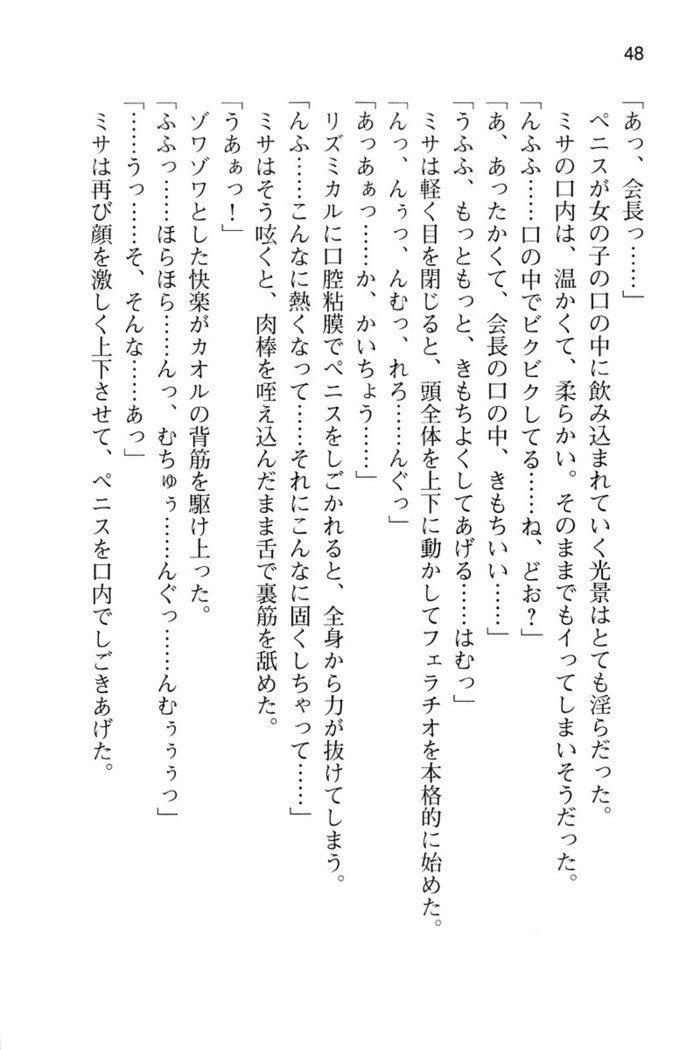 48
「あっ、会長っ……」
ペニスが女の子の口の中に飲み込まれていく光景はとても淫らだった。
ミサの口内は、温かくて、柔らかい。そのままでもイってしまいそうだった。
「んふふ……口の中でビクビクしてる……ね、どお？」
「あ、あったかくて、会長の口の中、きもちいい……」
「うふふ、もっともっと、きもちよくしてあげる……はむっ」
ミサは軽く目を閉じると、頭全体を上下に動かしてフェラチオを本格的に始めた。
「んっ、んぅっ、んむっ、れろ……んぐっ」
「あっあぁっ……か、かいちょう……」
リズミカルに口腔粘膜でペニスをしごかれると、全身から力が抜けてしまう。
「んふ……こんなに熱くなって……それにこんなに固くしちゃって……」
ミサはそう呟くと、肉棒を咥え込んだまま舌で裏筋を舐めた。
「うあぁっ！」
ゾワゾワとした快楽がカオルの背筋を駆け上った。
「ふふっ……ほらほら……んっ、むちゅぅ……んぐっ……んむぅぅぅっ」
「……うっ……そ、そんな……あっ」
ミサは再び顔を激しく上下させて、ペニスを口内でしごきあげた。